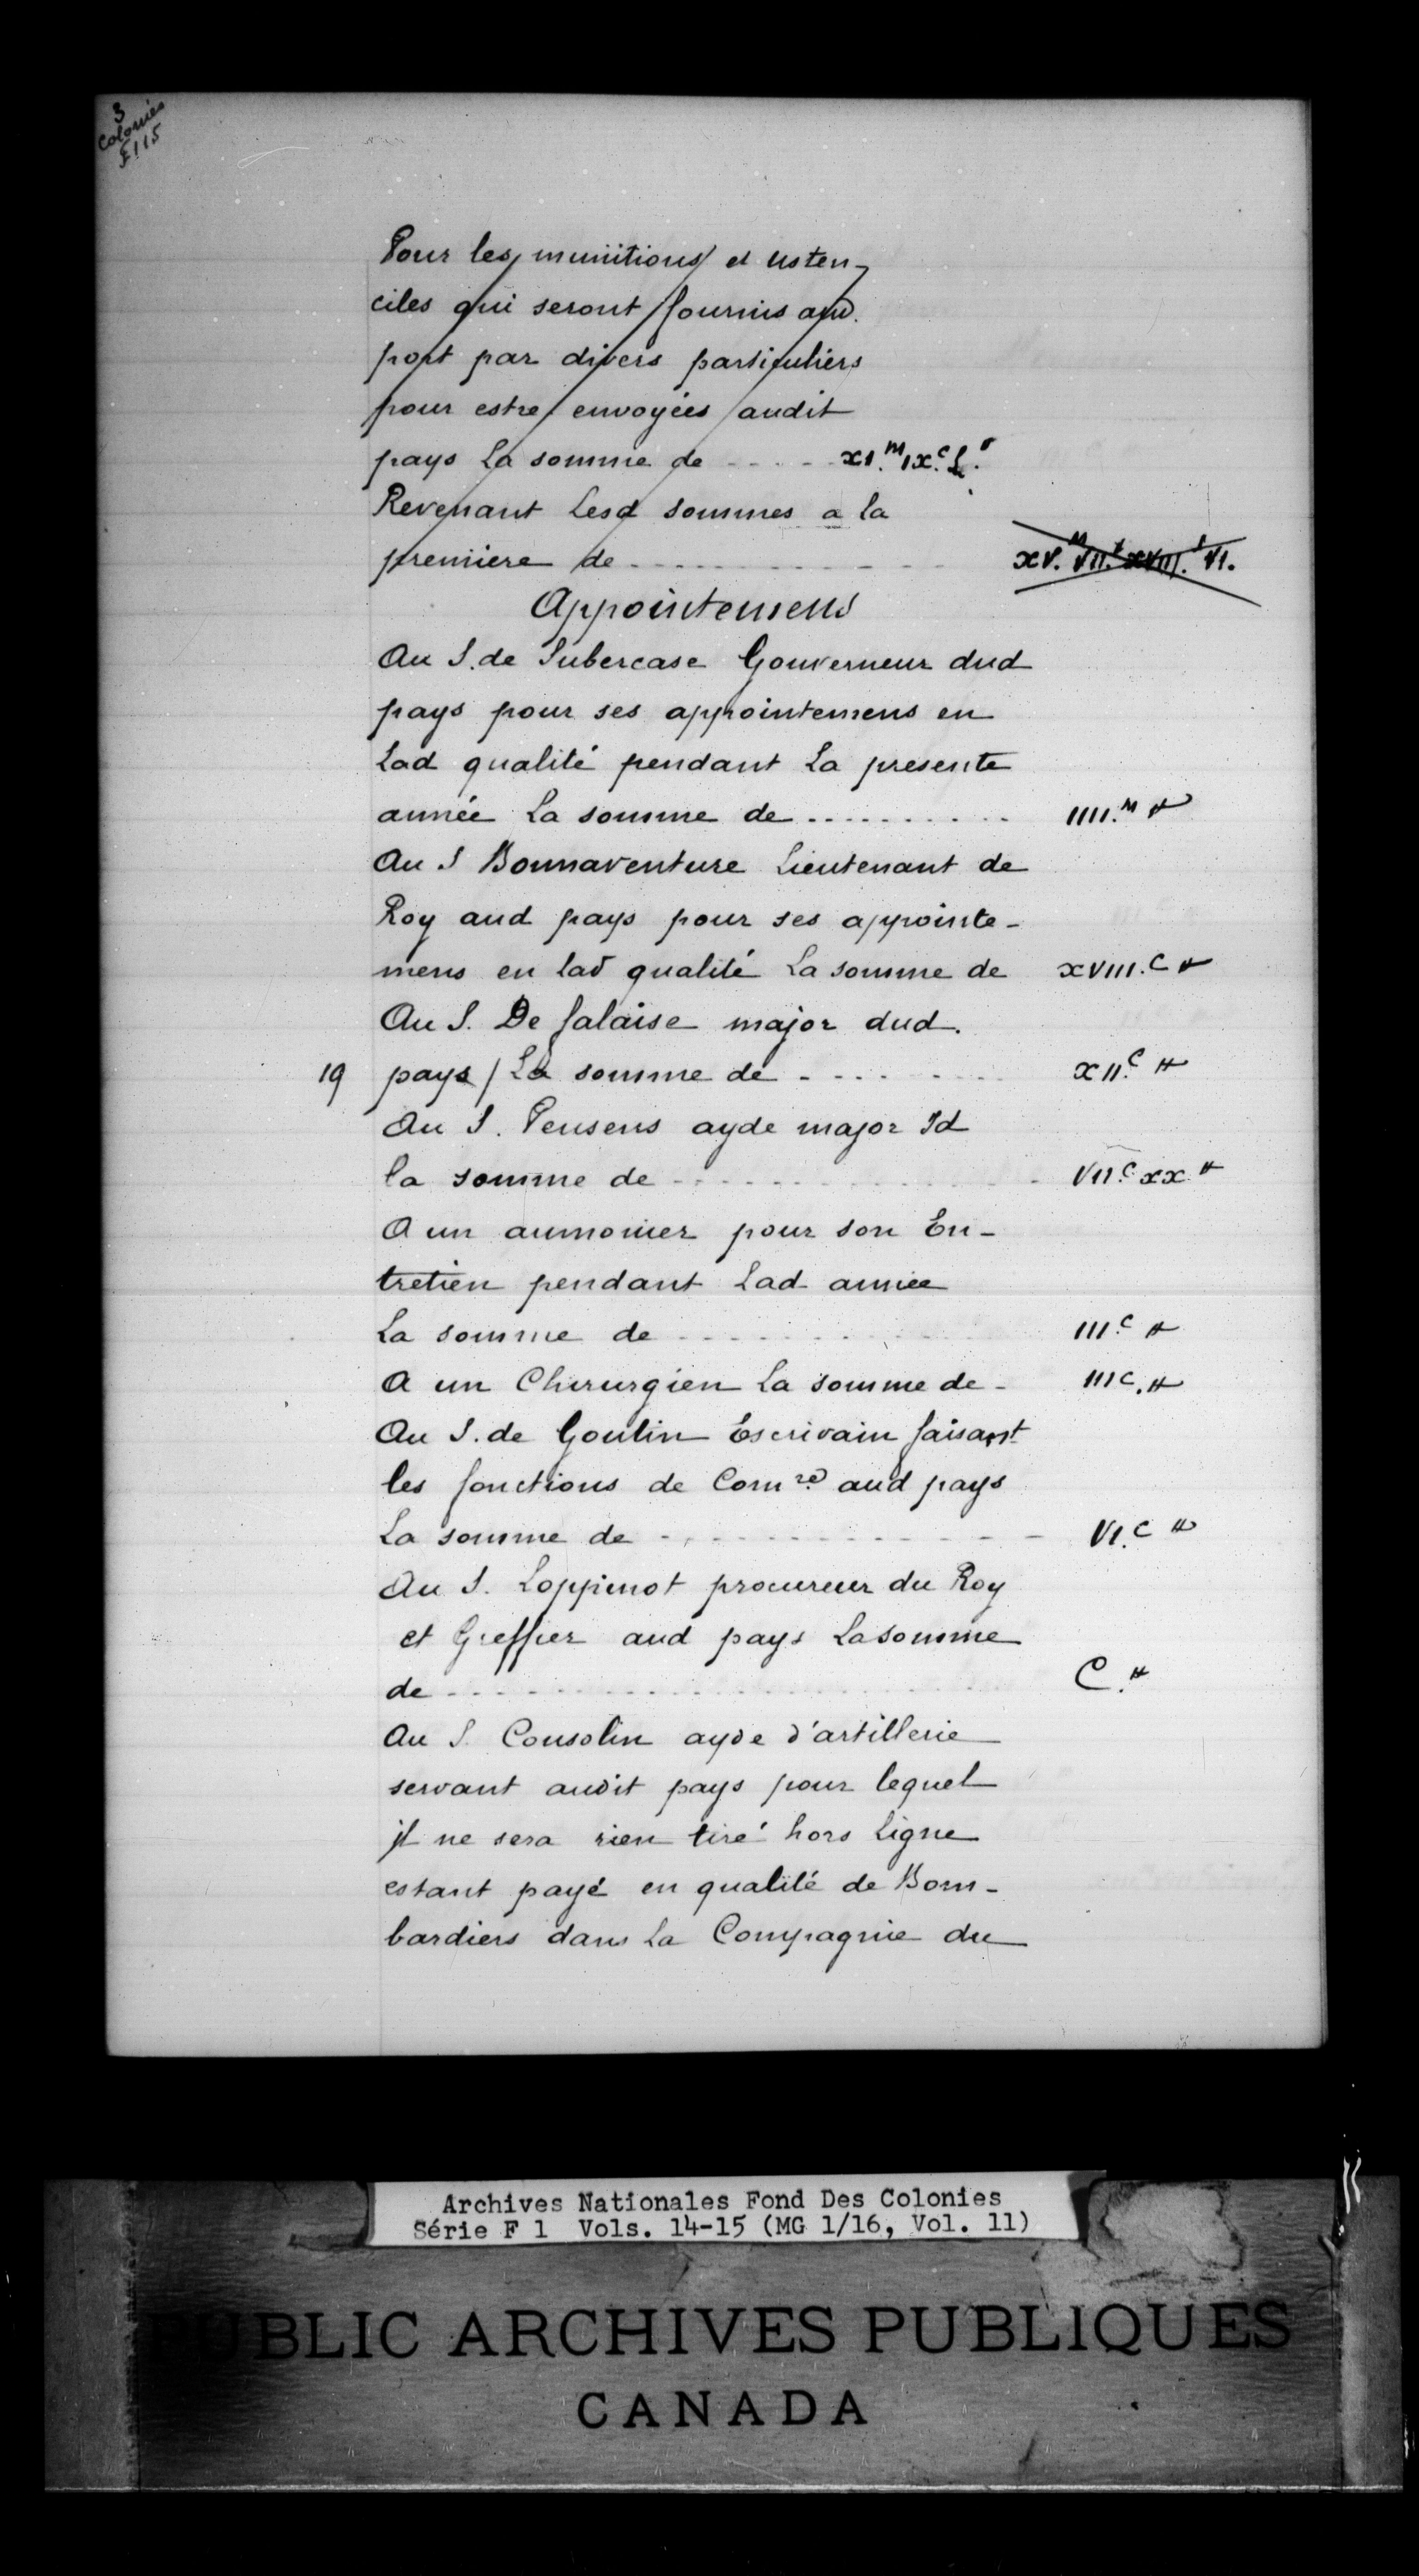 3
Colonies
F115
Pour les munitions et usten-
ciles qui seront fournis aud.
port par divers particuliers
pour estre envoyées audit
pays La somme de ----- XI.M IX.C L.#
Revenant Lesd sommes a la
premiere de ------------ XV.M VII.C XVIII.# VI.
Appointemens
Au S. de Subercase Gouverneur dud
pays pour ses appointemens en
Lad qualité pendant La presente
année La somme de .......... IIII.M #
Au S Bonnaventure Lieutenant de
Roy aud pays pour ses appointe-
mens en lad qualité La somme de XVIII.C #
Au S. De falaise major dud.
19 pays / La somme de -------- XII.C #
Au S. Pensens ayde major Id
la somme de ------------ VII.C XX #
A un aumonier pour son En-
tretien pendant Lad année
La somme de ---------- III.C #
A un Chirurgien La somme de - IIIC. #
Au S. de Goutin Escrivain faisant
les fonctions de Com.re aud pays
La somme de ------------ VI.C #
Au S. Loppinot procureur du Roy
et Greffier aud pays La somme
de ------------------ C.#
Au S. Consolin ayde d'artillerie
servant audit pays pour lequel
il ne sera rien tiré hors Ligne
estant payé en qualité de Bom-
bardiers dans La Compagnie du
Archives Nationales Fond Des Colonies
Série F 1 Vols. 14-15 (MG 1/16, Vol. 11)
PUBLIC ARCHIVES PUBLIQUES
CANADA